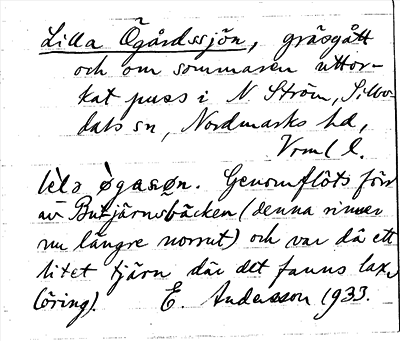 Lilla Ögårdssjön, gräsgått
och om sommaren uttor-
kat puss i N. Ström, Sillbo-
dals sn, Nordmarks hd,
Vrml l.
Genomflöts förr
av Butjärnsbäcken (denna rinner
nu längre norrut) och var då ett
litet tjärn där det fanns lax
(öring). E. Andersson 1933.